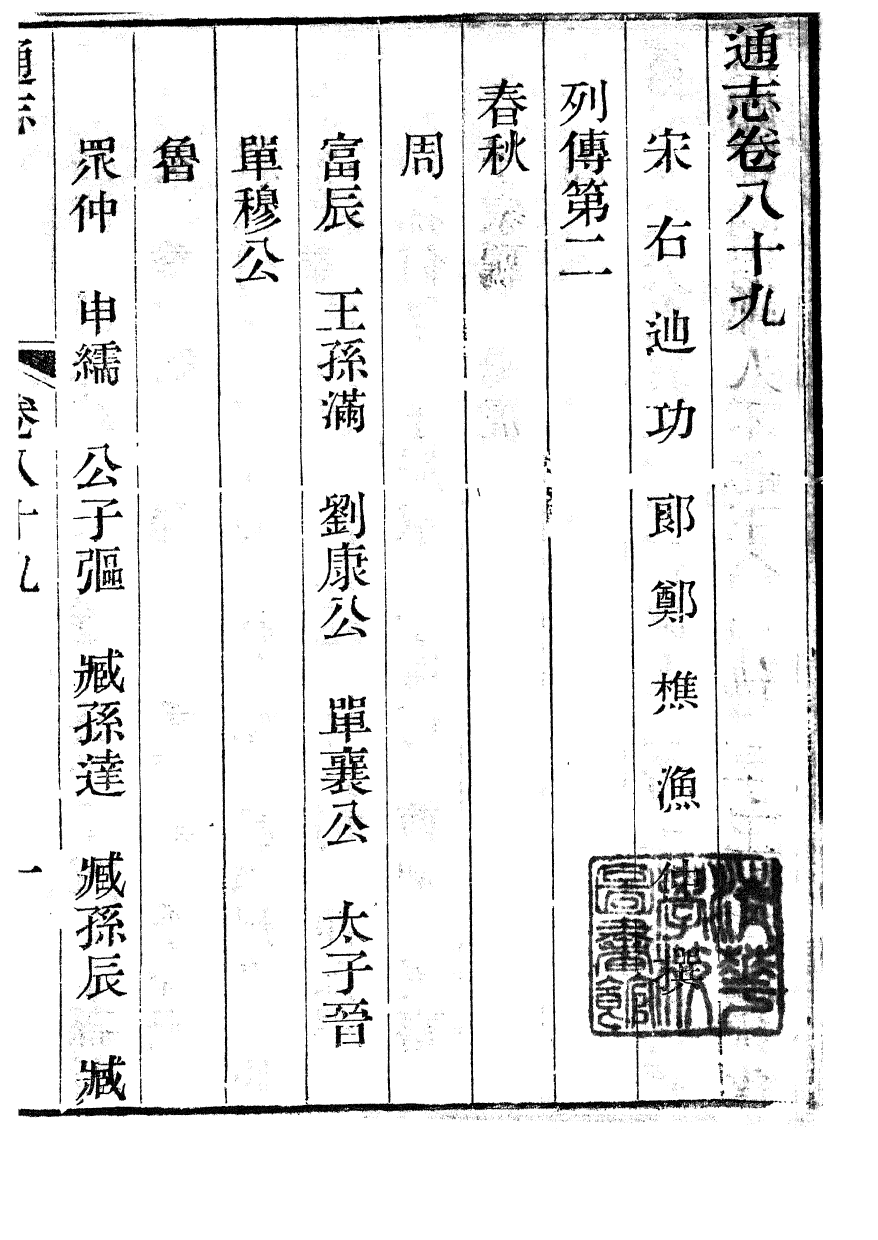 通志卷八十九
宋右迪功郎鄭樵漁仲撰
列傳第二
春秋
周
富辰 王孫滿 劉康公 單襄公 太子晉
單穆公
魯
眾仲 申繻 公子彄 臧孫達 臧孫辰 臧
通志 卷八十九 一
清華學校圖書館